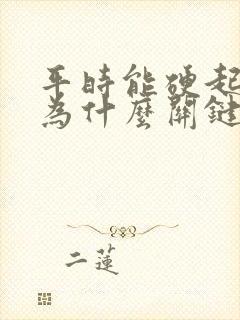 平時能硬起
為什麼關鍵
二蓮